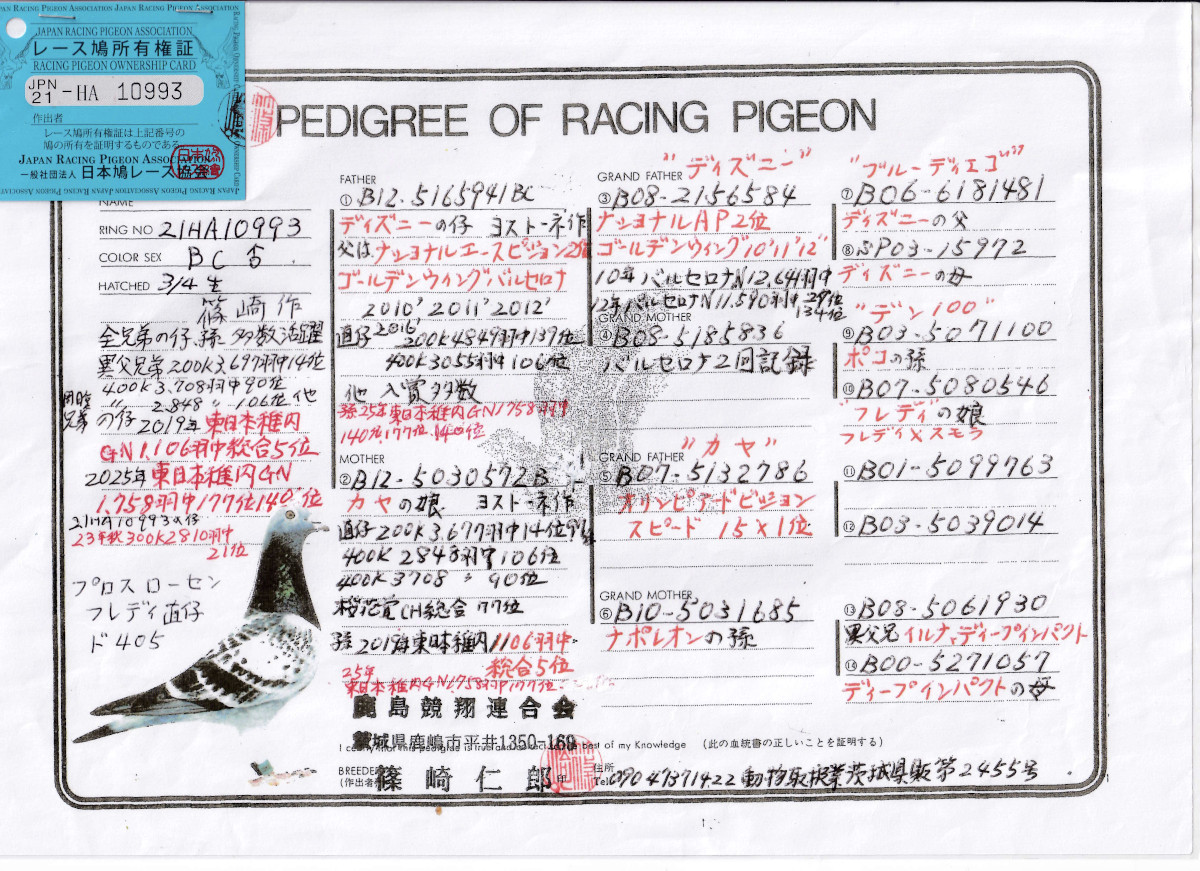 JAPAN RACING PIGEON ASSOCIATION
レース鳩所有権証
RACING PIGEON OWNERSHIP CARD
JPN 21 -HA 10993
作出者
レース鳩所有権証は上記番号の
鳩の所有を証明するものである
JAPAN RACING PIGEON ASSOCIATION
一般社団法人 日本鳩レース協会
PEDIGREE OF RACING PIGEON
NAME
RING NO 21HA10993
COLOR SEX BC ♂
HATCHED 3/4 生
篠崎 作
全兄弟の仔、孫 多数活躍
異父兄弟 200K3.697羽中14位
400K3.708羽中90位
〃 2.848 〃 106位 他
同腔兄弟 の仔2019年 東日本稚内
GN1.106羽中総合5位
2025年 東日本稚内GN
1.758羽中177位140位
21HA10993の仔
23年秋300K2810羽中
21位
プロス ローセン
フレディ直仔
ド405
FATHER
① B12-5165941BC
ディズニーの仔 ヨストーネ作
父はナショナルエースピジョン2位
ゴールデンウィングバルセロナ
2010' 2011' 2012'
直仔 2016' 200K4849羽中139位
400K3055羽中106位
他 入賞多数
孫25年東日本稚内GN1758羽中
140位177位
MOTHER
② B12-5030572B
カヤの娘 ヨストーネ作
直仔200K3.677羽中14位
400K 2848羽中106位
400K3708 〃 90位
桜花賞CH総合77位
孫2019年東日本稚内1106羽中
総合5位
25年
東日本稚内GN1.758羽中177位
GRAND FATHER "ディズニー"
③ B08-2156584
ナショナルAP2位
ゴールデンウィング10'11'12'
10年バルセロナN12.641羽中
12年バルセロナN11.590羽中 29位
134位
GRAND MOTHER
④ B08-5185836
バルセロナ2回記録
"カヤ"
GRAND FATHER
⑤ B07-5132786
オリンピアードピジョン
スピード 15×1位
GRAND MOTHER
⑥ B10-5031685
ナポレオンの孫
"ブルーディエゴ"
⑦ B06-6181481
ディズニーの父
⑧ SP03-15972
ディズニーの母
"デン100"
⑨ B03-5071100
ポコの孫
⑩ B07-5080546
"フレディ"の娘
フレディ×スモラ
⑪ B01-5099763
⑫ B03-5039014
⑬ B08-5061930
異父兄 イルナ、ディープインパクト
⑭ B00-5271057
ディープインパクトの母
鹿島競翔連合会
I certify that this pedigree is true and best of my Knowledge (此の血統書の正しいことを証明する)
茨城県鹿嶋市平井1350-169
BREEDER
(作出者)
篠崎仁郎
印
住所
Tel 090 4737 1422 動物取扱業茨城県販第2455号